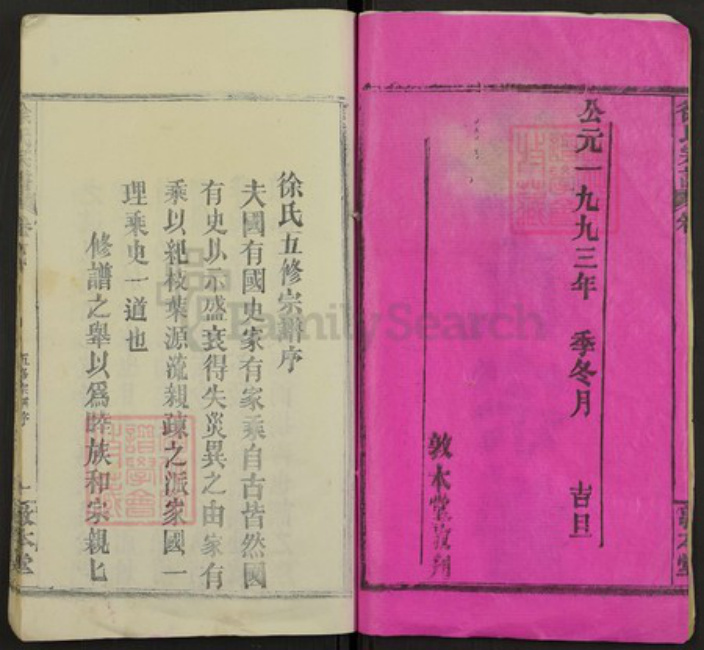 公元一九九三年 季冬月 吉旦
敦本堂
徐氏五修宗譜序
夫國有國史家有家乘自古皆然國
有史以示盛衰得失災異之由家有
乘以紀枝葉源流親疎之派家國一
理乘史一道也
修譜之舉以為睦族和宗親匕
敦本堂
FamilySearch